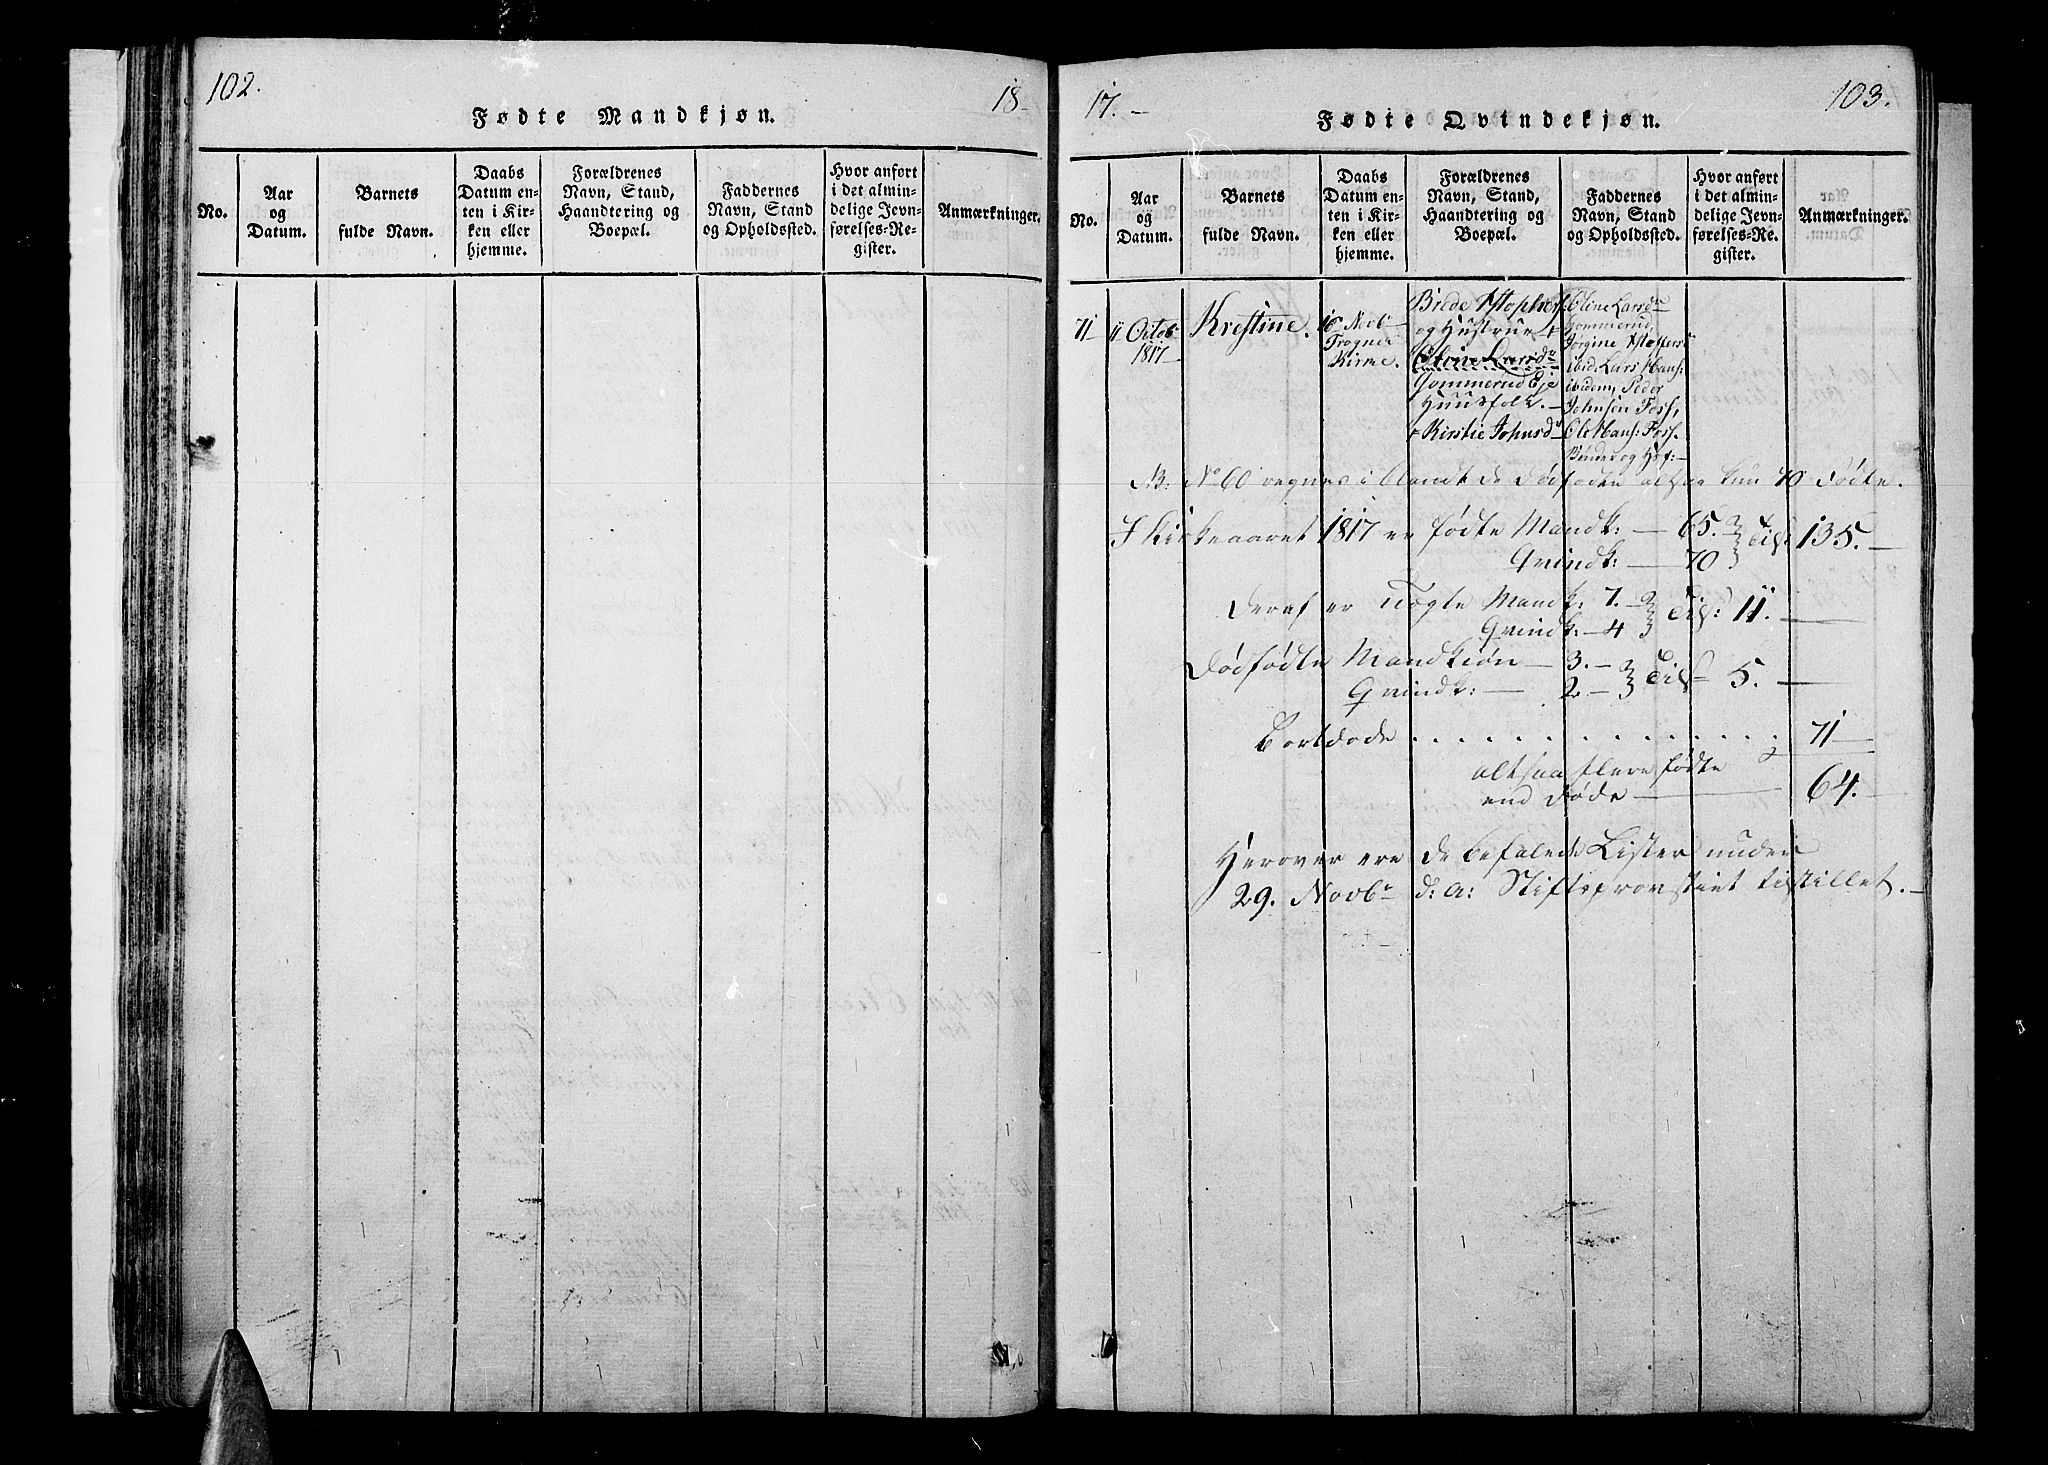 102.
18-
Fødte Mandkjøn.
No.
Aar
og
Datum.
Barnets
fulde Navn.
Daabs
Datum en-
ten i Kir-
ken eller
hjemme.
Forældrenes
Navn, Stand,
Haandtering og
Boepæl.
Faddernes
Navn, Stand
og Opholdssted.
Hvor anført
i det almin-
delige Jevn-
førelses-Re-
gister.
Anmærkninger.
17.-
103.
Fødte Qvindekjøn.
No.
Aar
og
Datum.
Barnets
fulde Navn.
Daabs
Datum en-
ten i Kir-
ken eller
hjemme.
Forældrenes
Navn, Stand,
Haandtering og
Boepæl.
Faddernes
Navn, Stand
og Opholdssted.
Hvor anført
i det almin-
delige Jevn-
førelses-Re-
gister.
Anmærkninger.
71
11 Octob
1817
Krestine.
16 Novb
Trogner
Kirke.
Brede
og Hustrue +
Oline Larsdr
Gommerud Eje
Huusfolk.
+ Kirstie Johnsdr
Oline Larsdr
Gommerud,
Jørgine
ibid. Lars Hans:
ibidem, Peder
Johnsen Foss,
Ole Hans: Foss.
Bønder og Hsf:
NB: No 60 regnes i blandt de Dødfødte altsaa kun 70 Fødte.
I Kirkeaaret 1817 er fødte Mandk: — 65. Tils: 135.
Qvindk: — 70
Deraf er Uægte Mandk: 7. Tils: 11.
Qvindk: — 4
Dødfødte Mandkiøn — 3. — Tils 5.
Qvindk: — 2 —
Bortdøde . . . . . . . . . . . . . . . 71
altsaa flere fødte
end Døde — 64.
Herover ere de befalede Lister under
29. Novbr d: a: Stiftsprovstiet tilstillet. —